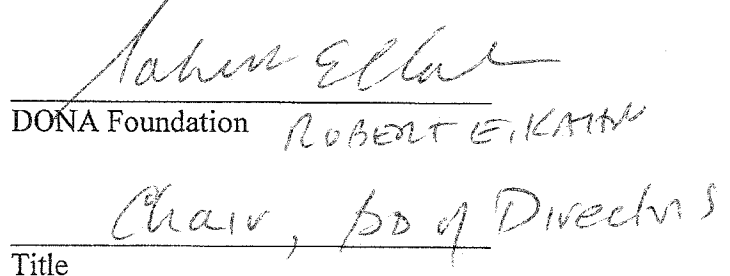 Robert E Kahn
DONA Foundation ROBERT E. KAHN
Chair, BD of Directors
Title